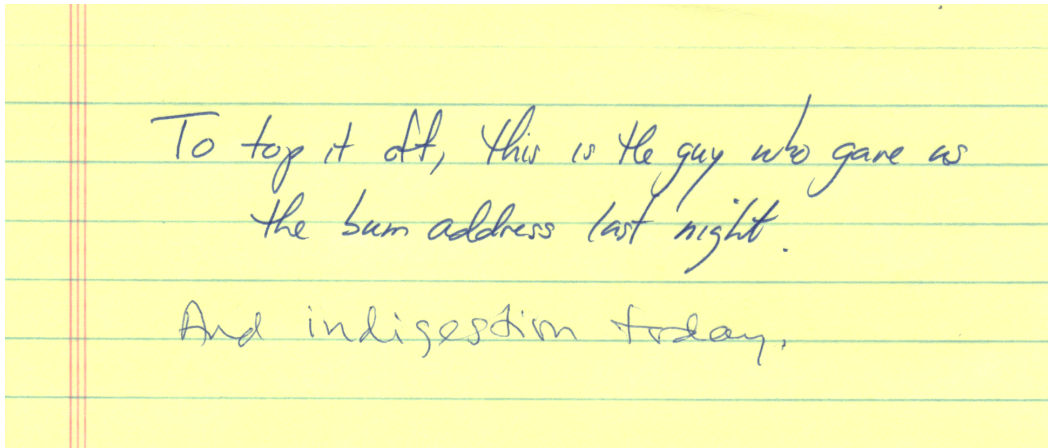 To top it off, this is the guy who gave us
the bum address last night.
And indigestion today.